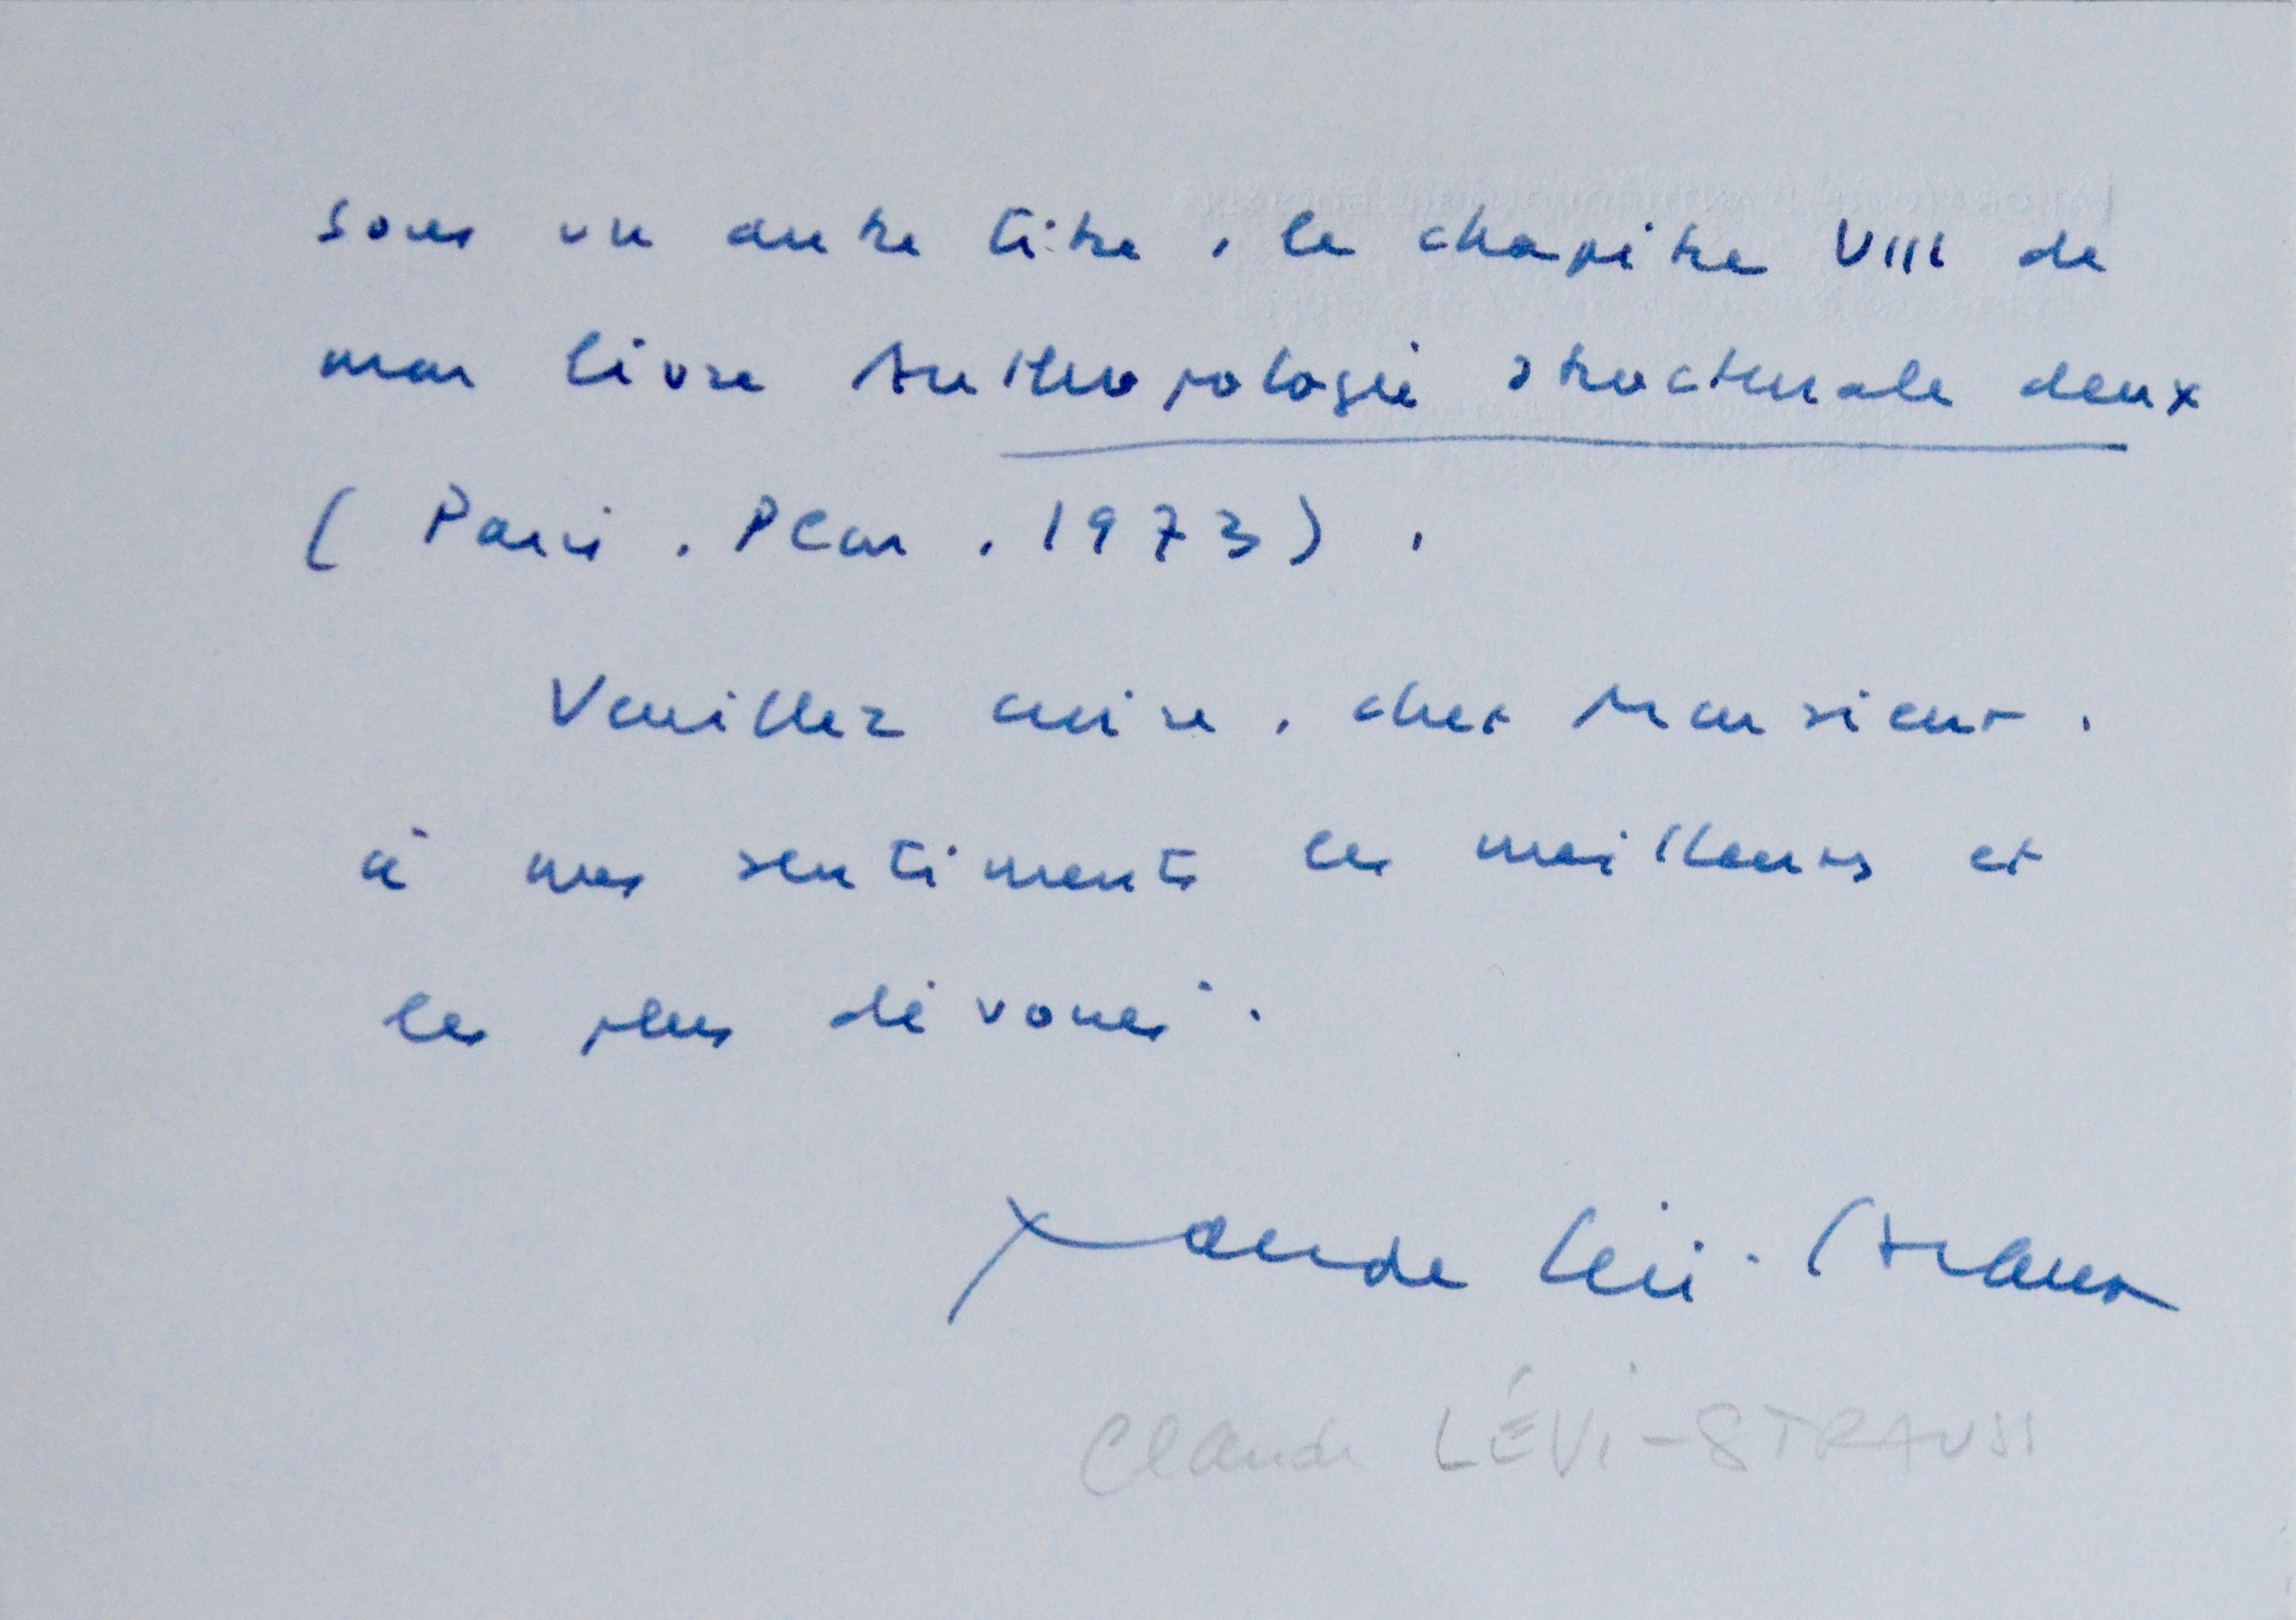 sous un autre titre, le chapitre VIII de
mon livre Anthropologie structurale deux
(Paris, Plon, 1973).
Veuillez croire, cher Monsieur,
à mes sentiments les meilleurs et
les plus dévoués.
Claude Lévi-Strauss
Claude LÉVI-STRAUSS